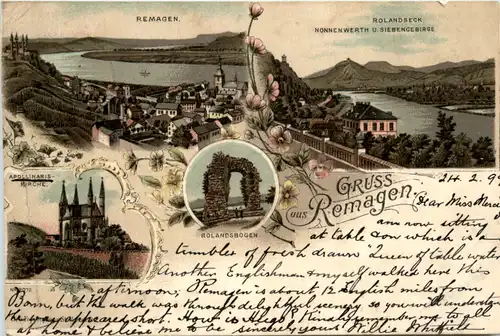 REMAGEN.
ROLANDSECK
NONNENWERTH U. SIEBENGEBIRGE
APOLLINARIS-
KIRCHE.
ROLANDSBOGEN
GRUSS
aus Remagen
24.2.9
Dear Miss
am now sitting
at table on which is a
tumbler of fresh drawn "Queen of table water
Another Englishman & myself walked here this
afternoon, Remagen is about 12 English miles from
Bonn, but the walk was through delightful scenery so you will understand
the way appeared short. How is Hugh & Kind regards to all
at home & believe me to be sincerely yours Willie